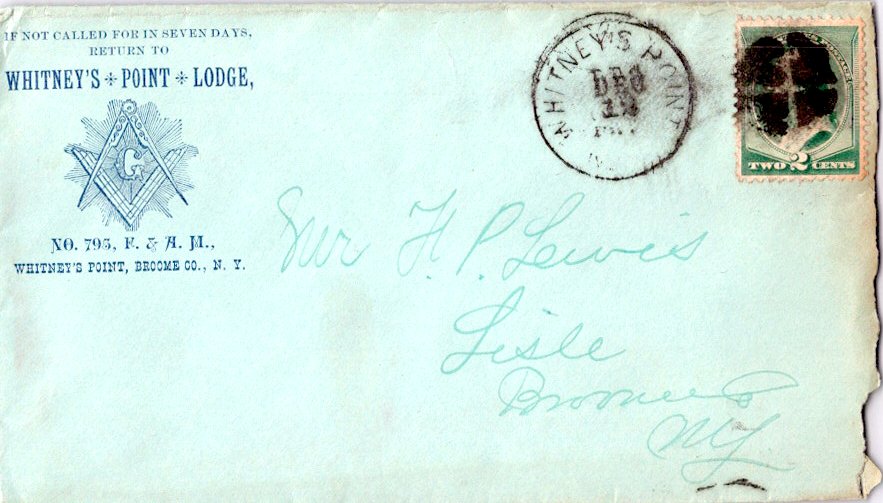 IF NOT CALLED FOR IN SEVEN DAYS,
RETURN TO
WHITNEY'S + POINT + LODGE,
G
NO. 795, F. & A. M.,
WHITNEY'S POINT, BROOME CO., N. Y.
WHITNEY'S POINT
DEC
TWO 2 CENTS
Mr H. P. Lewis
Lisle
Broome Co
NY